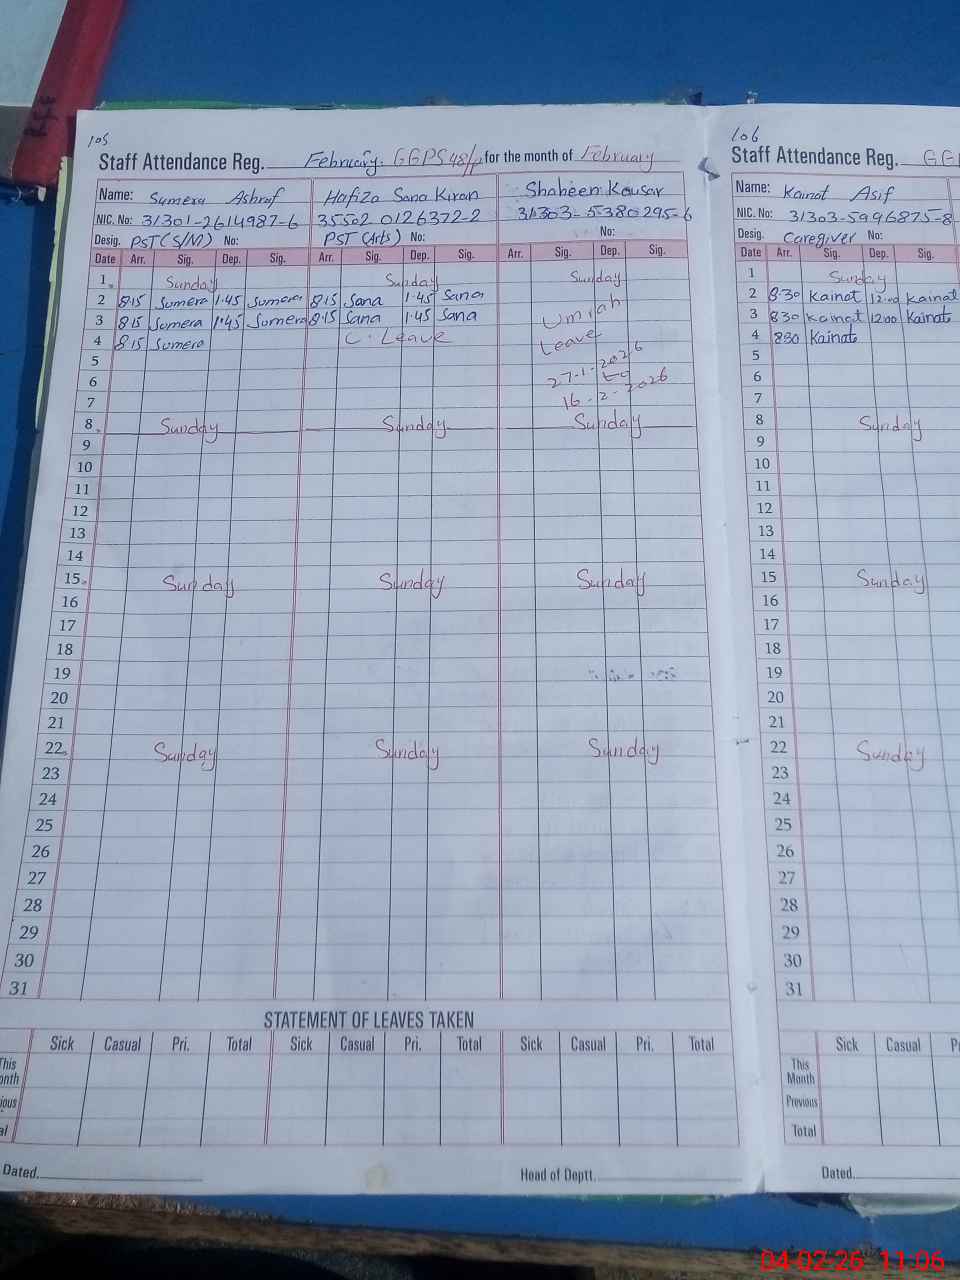 105
Staff Attendance Reg. February. GGPS 48/P for the month of February
Name: Sumera Ashraf Hafiza Sana Kiran Shaheen Kousar
NIC. No: 31301-2614987-6 35502 0126372-2 31303-5380295-6
Desig. PST(S/M) No: PST (Arts) No: No:
Date Arr. Sig. Dep. Sig. Arr. Sig. Dep. Sig. Arr. Sig. Dep. Sig.
1 Sunday Sunday Sunday
2 8:15 Sumera 1:45 Sumera 8:15 Sana 1:45 Sana Umrah
3 8:15 Sumera 1:45 Sumera 8:15 Sana 1:45 Sana
4 8:15 Sumera C. Leave Leave
5 27-1-2026
6 to
7 16-2-2026
8 Sunday Sunday Sunday
9
10
11
12
13
14
15 Sunday Sunday Sunday
16
17
18
19
20
21
22 Sunday Sunday Sunday
23
24
25
26
27
28
29
30
31
STATEMENT OF LEAVES TAKEN
Sick Casual Pri. Total Sick Casual Pri. Total Sick Casual Pri. Total
This
onth
ious
al
Dated. Head of Deptt.
106
Staff Attendance Reg. GG
Name: Kainat Asif
NIC. No: 31303-5996875-8
Desig. Caregiver No:
Date Arr. Sig. Dep. Sig.
1 Sunday
2 8:30 Kainat 12:00 Kainat
3 830 Kainat 1200 Kainat
4 830 Kainat
5
6
7
8 Sunday
9
10
11
12
13
14
15 Sunday
16
17
18
19
20
21
22 Sunday
23
24
25
26
27
28
29
30
31
Sick Casual P
This
Month
Previous
Total
Dated.
04-02-26 11:06